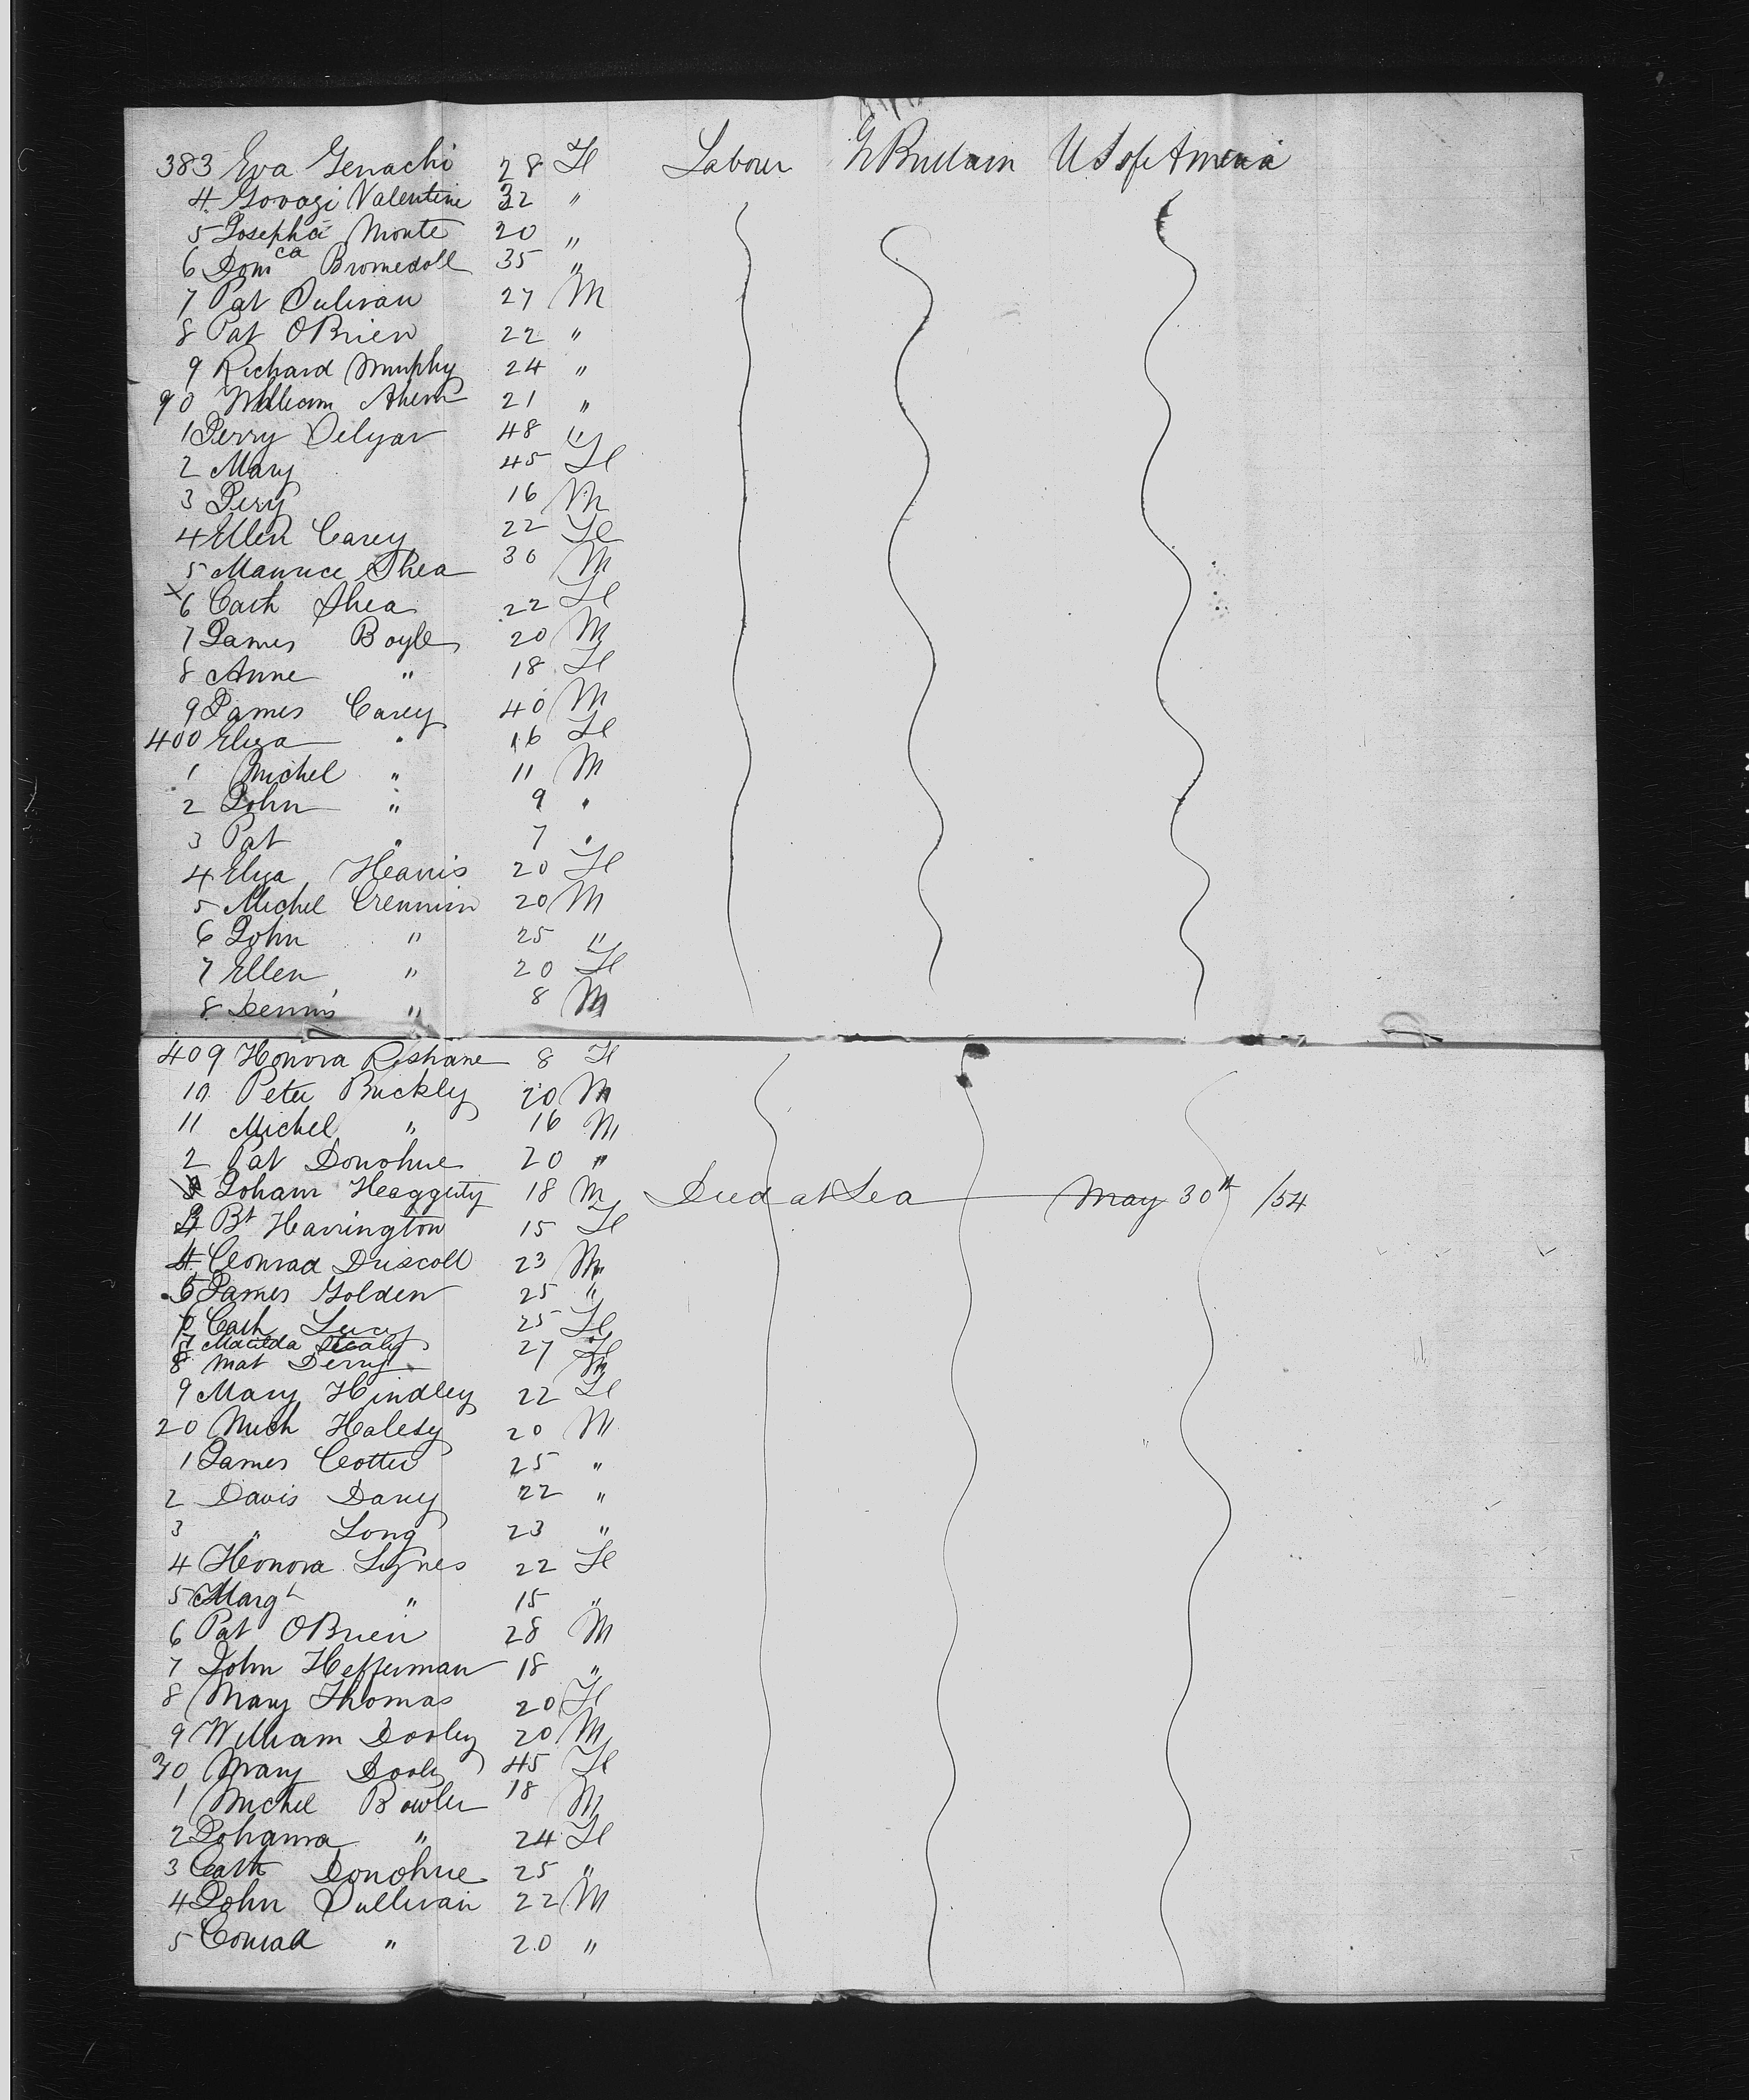 383 Eva Genachi 28 F Labour Gt Brittain U S of America
4 Govagi Valentine 32 "
5 Josepha Monte 20 "
6 Domca Bromedoll 35 "
7 Pat Sulivan 27 M
8 Pat OBrien 22 "
9 Richard Murphy 24 "
90 William Ahern 21 "
1 Perry Dilyar 48 "
2 Mary 45 F
3 Pery 16 M
4 Ellen Carey 22 F
5 Maurice Shea 30 M
x 6 Cath Shea 22 F
7 James Boyle 20 M
8 Anne " 18 F
9 James Carey 40 M
400 Eliza " 16 F
1 Michel " 11 M
2 John " 9 "
3 Pat " 7 "
4 Eliza Hearris 20 F
5 Michel Crennin 20 M
6 John " 25 "
7 Ellen " 20 F
8 Dennis " 8 M
409 Honora Roshane 8 F
10 Peter Buckly 20 M
11 Michel " 16 M
2 Pat Donohue 20 "
Johann Heagguty 18 M Died at Sea May 30th /54
3 Bt Harrington 15 F
4 Conrad Driscoll 23 M
5 James Golden 25 "
6 Cath Lucy 25 F
7 Matilda Healy 27 F
8 Mat Derry M
9 Mary Hindley 22 F
20 Mich Halesy 20 M
1 James Cotter 25 "
2 Davis Darcy 22 "
3 " Long 23 "
4 Honora Lynes 22 F
5 Margt " 15 "
6 Pat OBrien 28 M
7 John Hefferman 18 "
8 Mary Thomas 20 F
9 William Dooley 20 M
30 Mary Dooly 45 F
1 Michel Bowler 18 M
2 Johanna " 24 F
3 Cath Donohue 25 "
4 John Sullivan 22 M
5 Conrad " 20 "